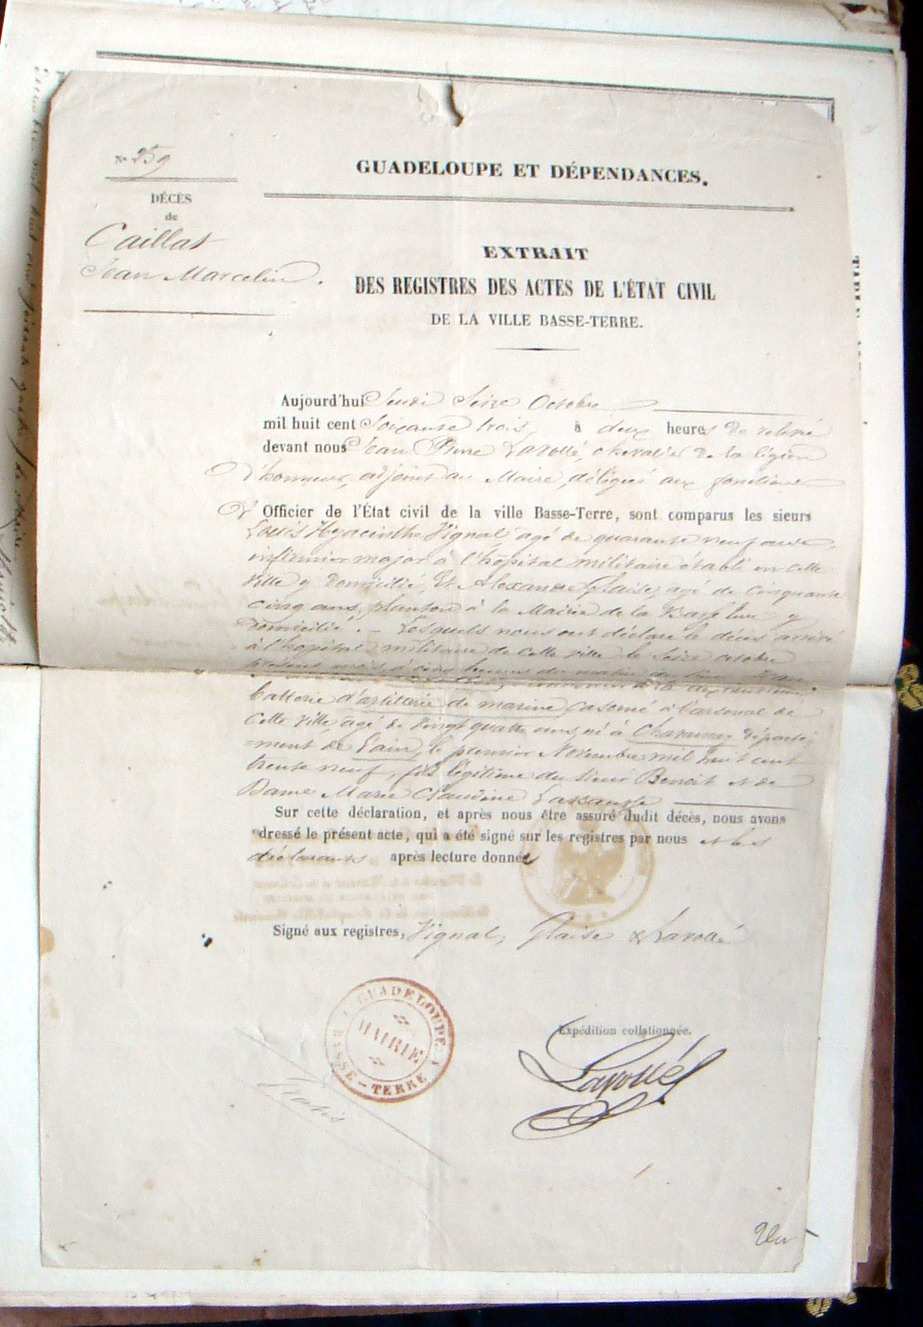 N° 259
DÉCÈS
de
Caillat
Jean Marcelin.
GUADELOUPE ET DÉPENDANCES.
EXTRAIT
DES REGISTRES DES ACTES DE L'ÉTAT CIVIL
DE LA VILLE BASSE-TERRE.
Aujourd'hui Jeudi Seize Octobre
mil huit cent Soixante trois, à deux heures de relevé
devant nous Jean Lavollé, chevalier de la légion
d'honneur, adjoint au Maire, délégués aux fonctions
d'Officier de l'État civil de la ville Basse-Terre, sont comparus les sieurs
Louis Hyacinthe Vignal, agé de quarante neuf ans,
infirmier major à l'hôpital militaire établi en cette
ville y domicilié, Et Alexandre Glaise, agé de cinquante
cinq ans, planton à la Mairie de la Basse Terre y
domicilié. - Lesquels nous ont déclaré le décès arrivé
à l'hôpital militaire de cette ville le Seize octobre
présent mois à cinq heures du matin du sieur
batterie d'artillerie de marine caserné à l'arsenal de
cette ville, agé de vingt quatre ans, né à départe
-ment de l'ain, le premier Novembre mil huit cent
trente neuf, fils légitime du sieur Benoit et de
Dame Marie Claudine
Sur cette déclaration, et après nous être assuré dudit décès, nous avons
dressé le présent acte, qui a été signé sur les registres par nous et les
déclarants après lecture donnée
Signé aux registres, Vignal, Glaise & Lavollé
GUADELOUPE
MAIRIE
BASSE-TERRE
Expédition collationnée.
Lavollé